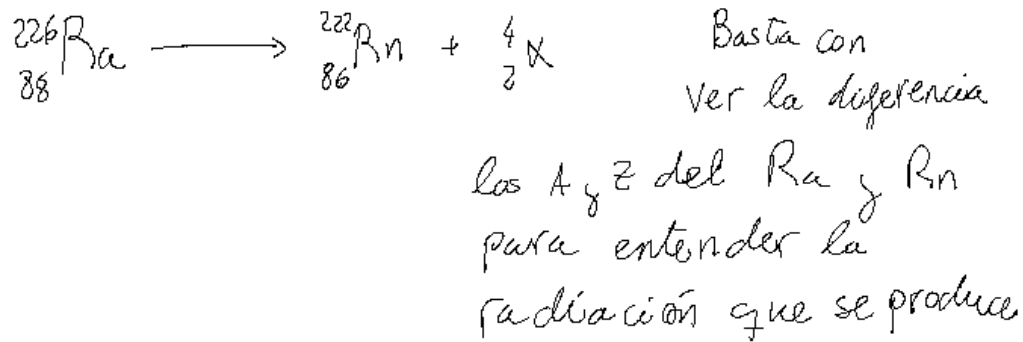 ²²⁶₈₈Ra ⟶ ²²²₈₆Rn + ⁴₂α
Basta con
ver la diferencia
los A y Z del Ra y Rn
para entender la
radiación que se produce